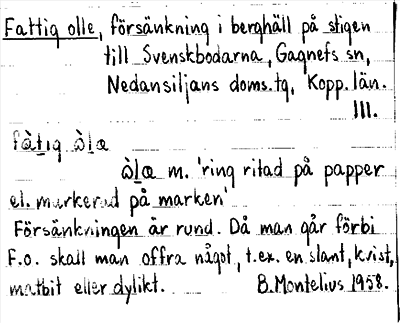 Fattig olle, försänkning i berghäll på stigen
till Svenskbodarna, Gagnefs sn,
Nedansiljans doms.tg, Kopp. län.
III.
fàt̲ig ὼl̲a
ὼl̲a m. 'ring ritad på papper
el. markerad på marken'
Försänkningen är rund. Då man går förbi
F.o. skall man offra något, t.ex. en slant, kvist,
matbit eller dylikt. B. Montelius 1958.